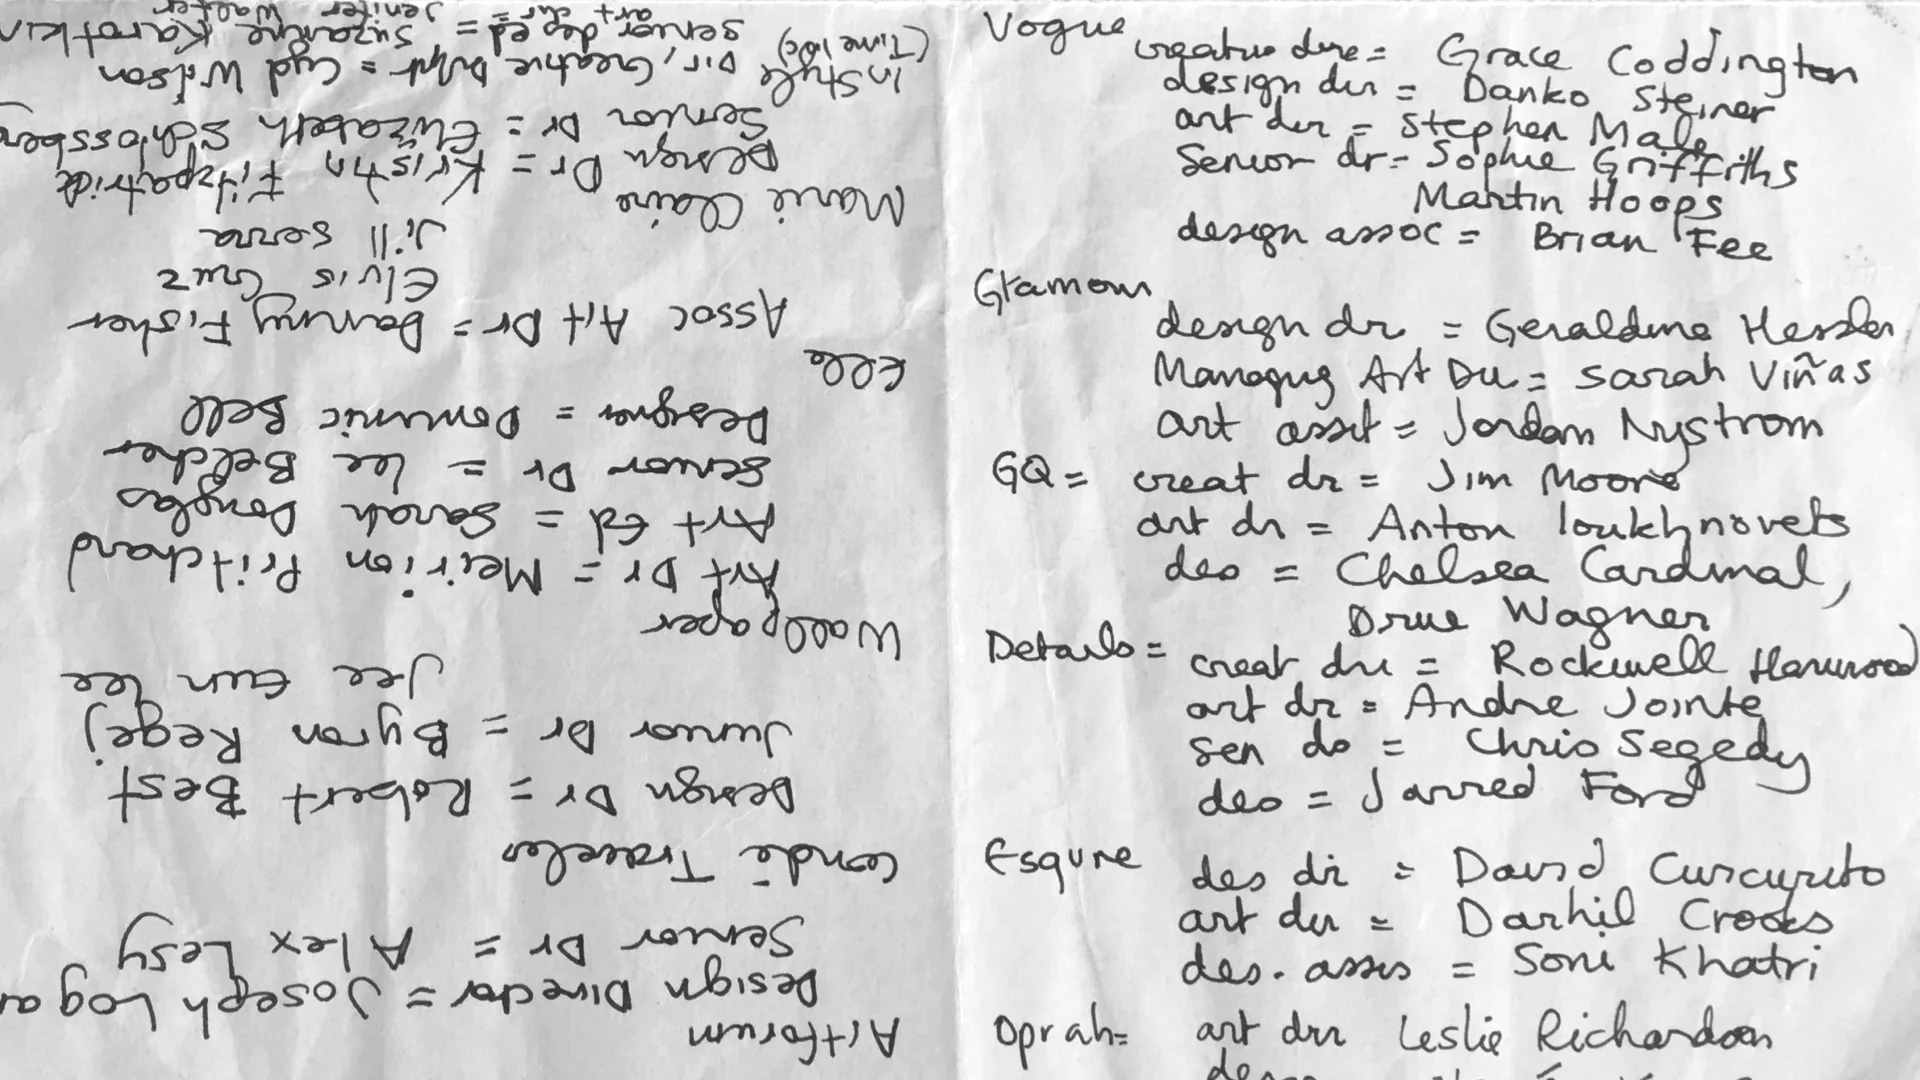 Vogue
creative dire = Grace Coddington
design dir = Danko Steiner
art dir = Stephen Male
Senior dr = Sophie Griffiths
Martin Hoops
design assoc = Brian Fee
Glamour
design dr = Geraldine Hessler
Managing Art Dir = Sarah Viñas
art assit = Jordan Nystrom
GQ = creat dr = Jim Moore
art dr = Anton Ioukhnovets
des = Chelsea Cardinal,
Drue Wagner
Details = creat dir = Rockwell Harwood
art dr = Andre Jointe
sen des = Chris Segedy
des = Jarred Ford
Esquire
des dir = David Curcurito
art dir = Darhil Crooks
des. assis = Soni Khatri
Oprah = art dir Leslie Richardson
Artforum
Design Director = Joseph Logan
Senior Dr = Alex Lesy
Condé Traveler
Design Dr = Robert Best
Junior Dr = Byron Regej
Jee Eun Lee
Wallpaper
Art Dr = Meirion Pritchard
Art Ed = Sarah Douglas
Senior Dr = Lee Belcher
Designer = Dominic Bell
Elle
Assoc Art Dr = Danny Fisher
Elvis Cruz
Jill Serra
Marie Claire
Design Dr = Kristin Fitzpatrick
Senior Dr = Elizabeth Schlossberg
InStyle Dir, Creative Dvlpt = Cyd Wilson
(Time Inc) senior dep ed = Suzanne Karotkin
art dir = Jenifer Walter